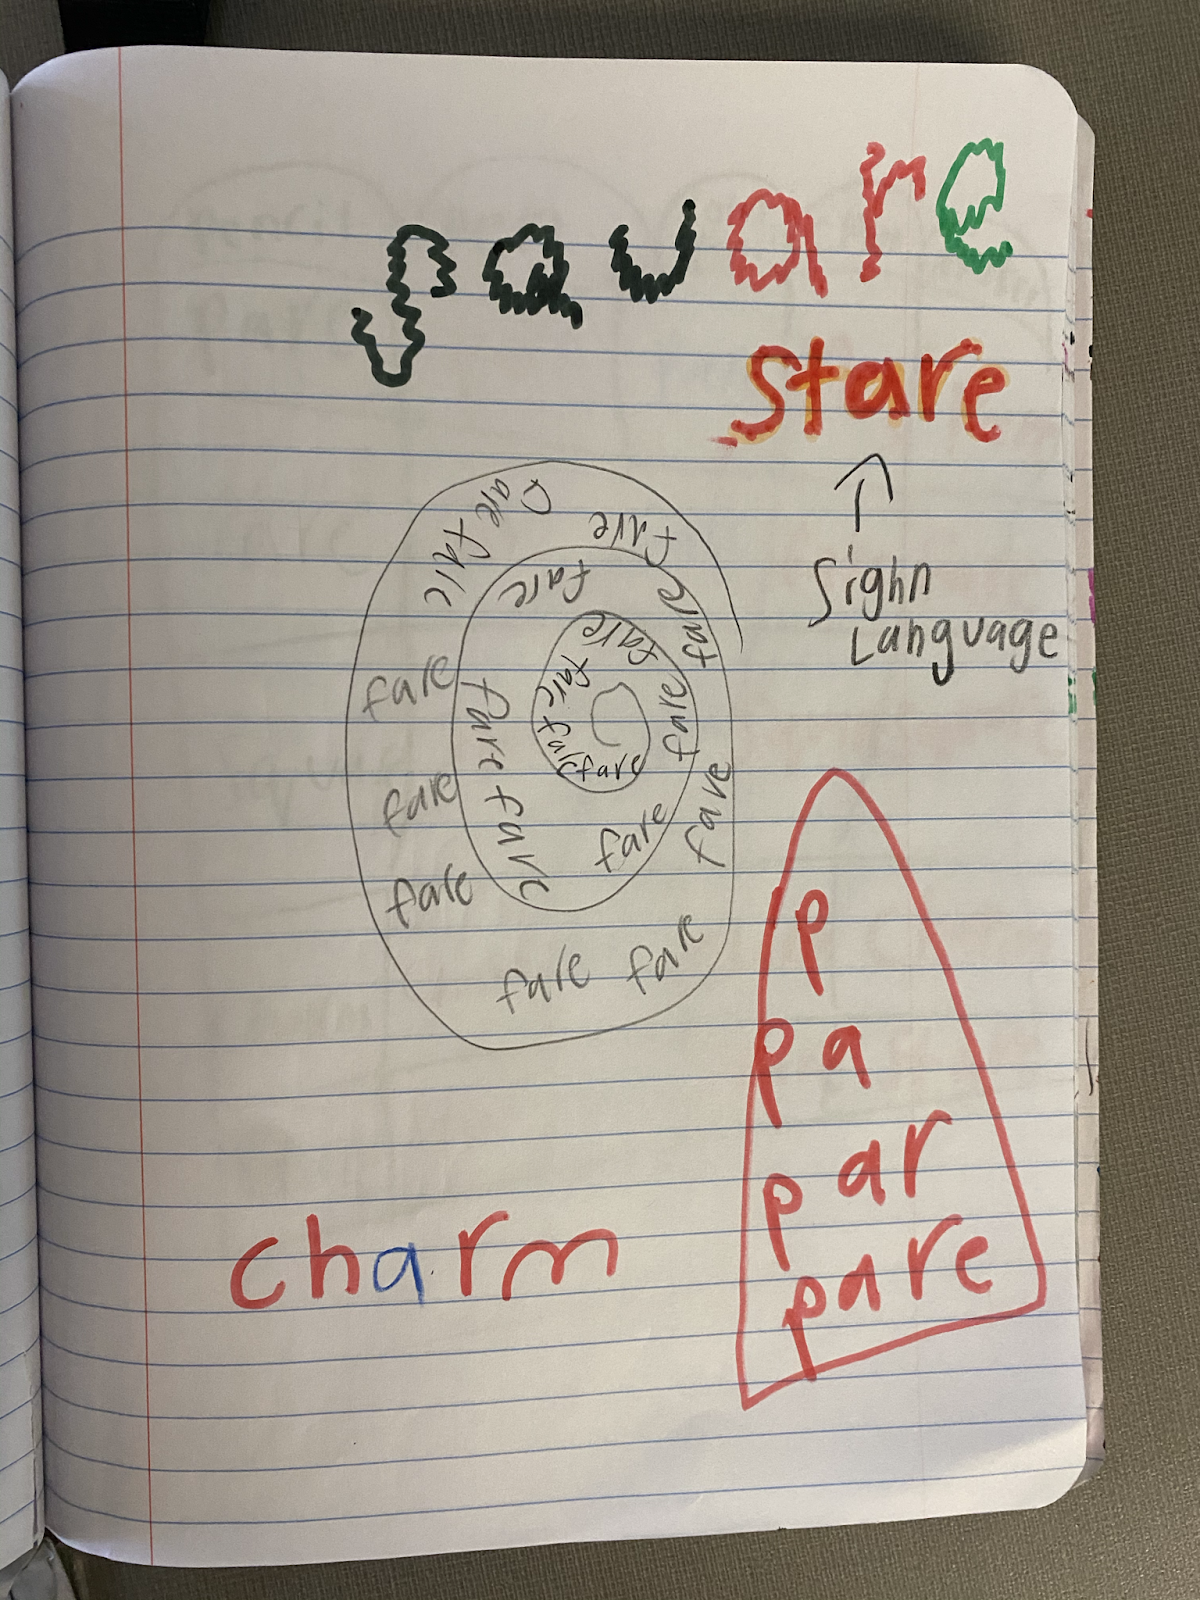 square
stare
Sighn
Language
fare fare fare fare fare fare fare fare fare fare fare fare fare fare fare fare fare fare fare
p
pa
par
pare
charm